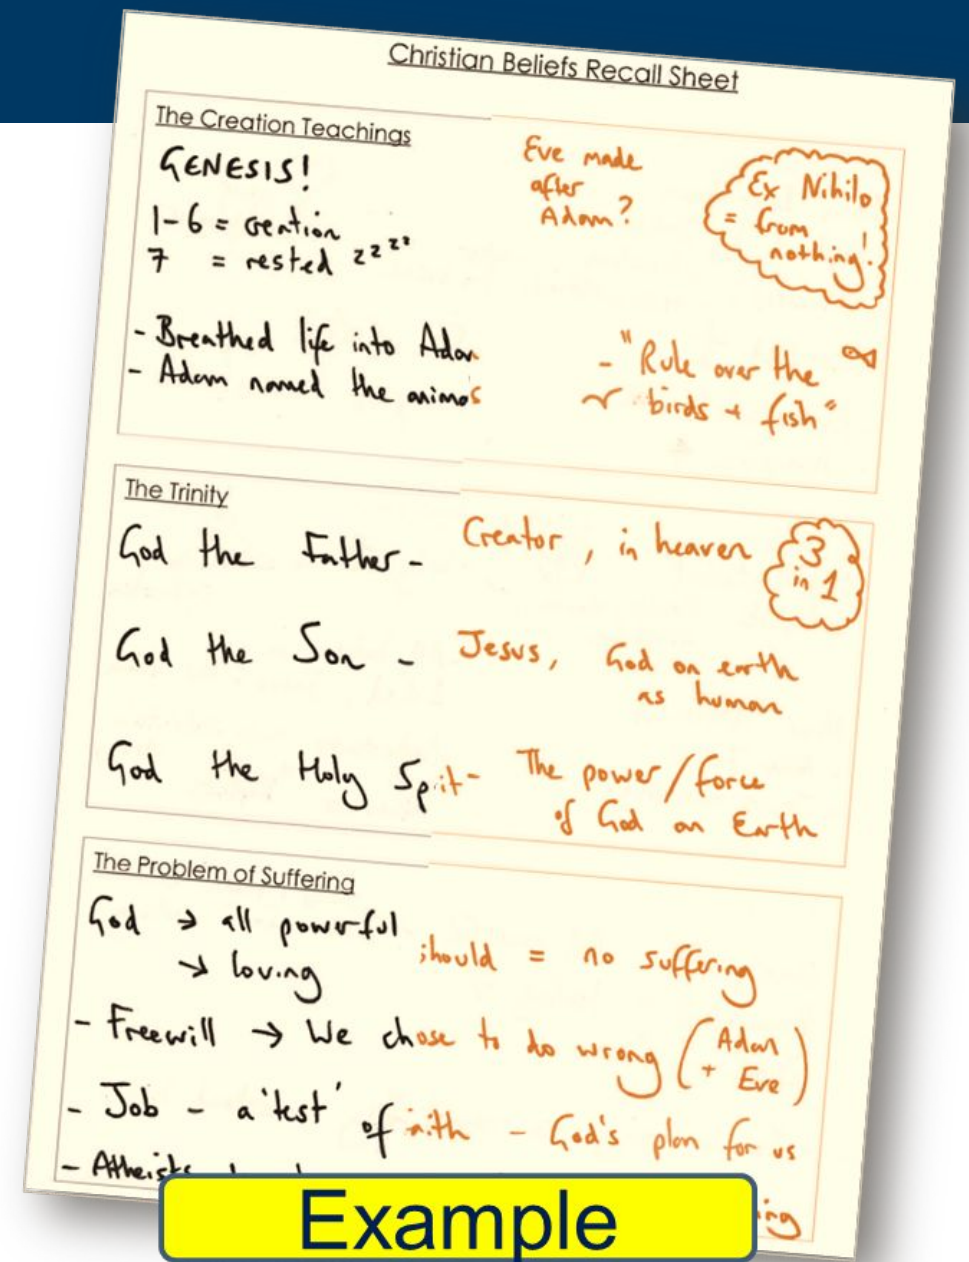 Christian Beliefs Recall Sheet
The Creation Teachings
GENESIS!
1-6 = creation
7 = rested zzzzz
Eve made
after
Adam?
Ex Nihilo
= from
nothing!
- Breathed life into Adam
- Adam named the animals
- "Rule over the
birds + fish"
The Trinity
God the Father - Creator, in heaven
3
in 1
God the Son - Jesus, God on earth
as human
God the Holy Spirit - The power/force
of God on Earth
The Problem of Suffering
God → all powerful
→ loving
should = no suffering
- Freewill → We chose to do wrong (Adam
+ Eve)
- Job - a 'test' of faith - God's plan for us
- Atheists
Example